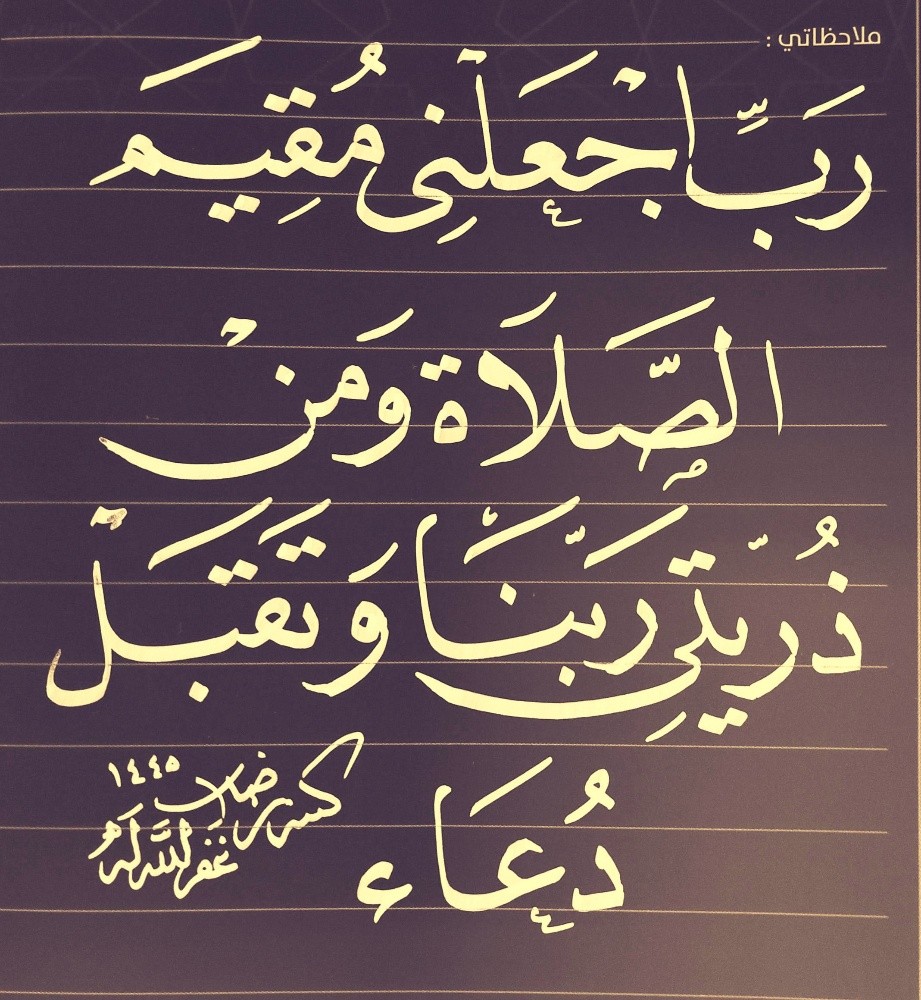 ملاحظاتي :
رَبِّ اجْعَلْنِى مُقِيمَ
الصَّلَاة وَمنْ
ذُرّيَتِى رَبَّنَا وَتَقَبَلْ
دُعَاء
١٤٤٥
غفر الله له